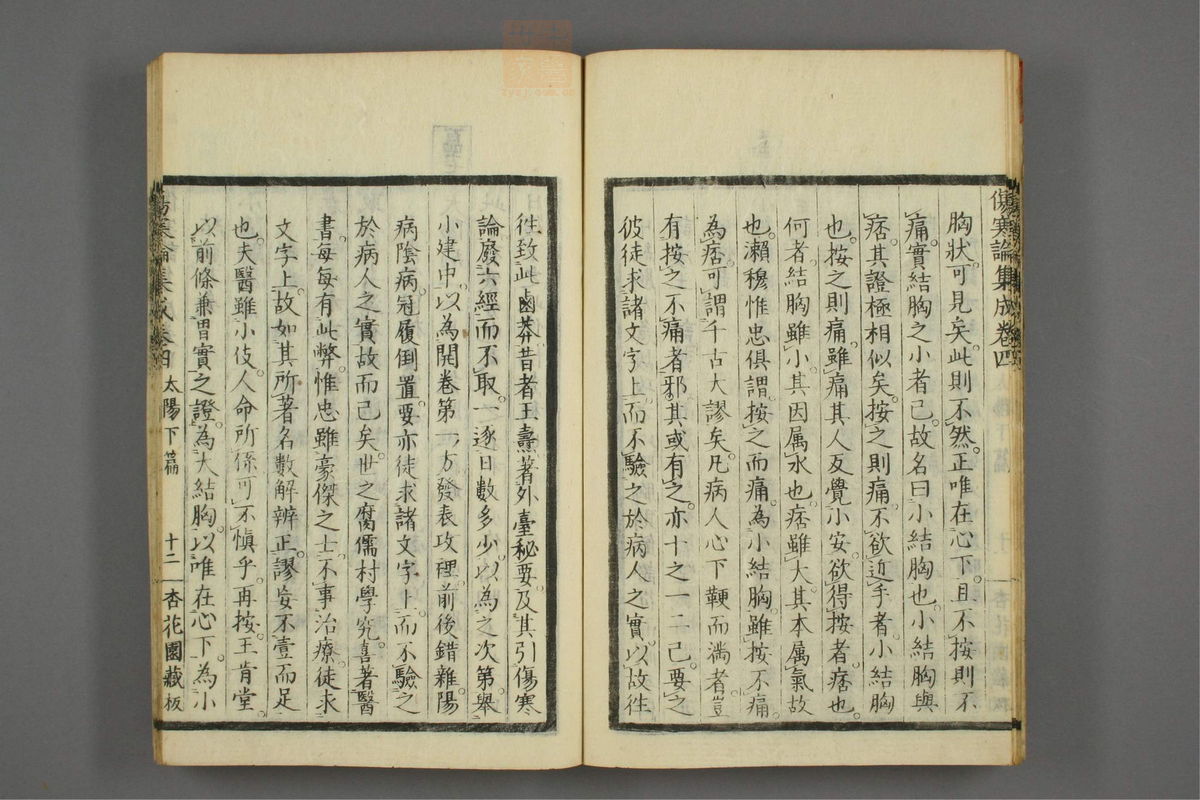 傷寒論集成卷四
胸狀可見矣此則不然正唯在心下且不按則不
痛實結胸之小者已故名曰小結胸也小結胸與
痞其證極相似矣按之則痛不欲近手者小結胸
也按之則痛雖痛其人反覺小安欲得按者痞也
何者結胸雖小其因属水也痞雖大其本属氣故
也瀨穆惟忠俱謂按之而痛為小結胸雖按不痛
為痞可謂千古大謬矣凡病人心下鞕而満者豈
有按之不痛者邪其或有之亦十之一二已要之
彼徒求諸文字上而不驗之於病人之實以故徃
徃致此鹵莽昔者王燾著外臺秘要及其引傷寒
論廢六經而不取一逐日數多少以為之次第舉
小建中以為開卷第一方發表攻裡前後錯雜陽
病陰病冠履倒置要亦徒求諸文字上而不驗之
於病人之實故而已矣世之腐儒村學究喜著醫
書每每有此弊惟忠雖豪傑之士不事治療徒求
文字上故如其所著名數解辨正謬妄不壹而足
也夫醫雖小伎人命所係可不慎乎再按王肯堂
以前條兼胃實之證為大結胸以唯在心下為小
傷寒論集成卷四 太陽下篇 十二 杏花園藏板